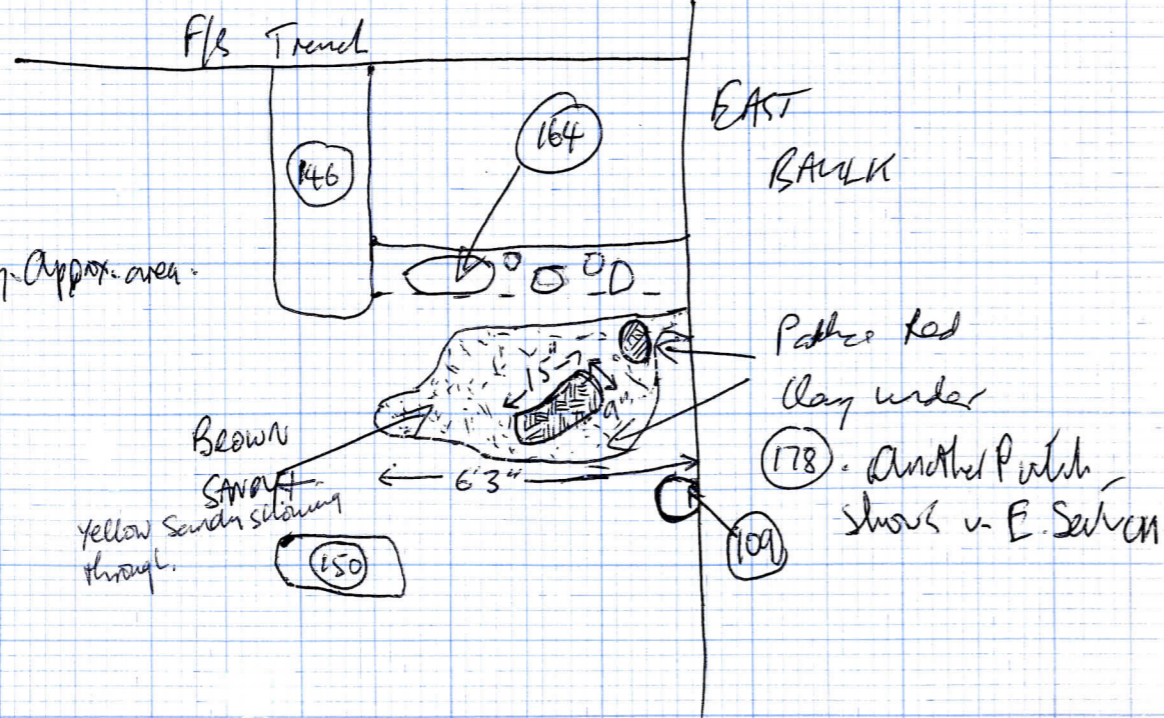 F/S Trench
EAST
BAULK
164
146
Approx. area.
15"
9"
Patches Red
Clay under
178. Another Patch
shows in E. Section
BROWN
SANDY
6'3"
Yellow Sandy showing
through.
150
109